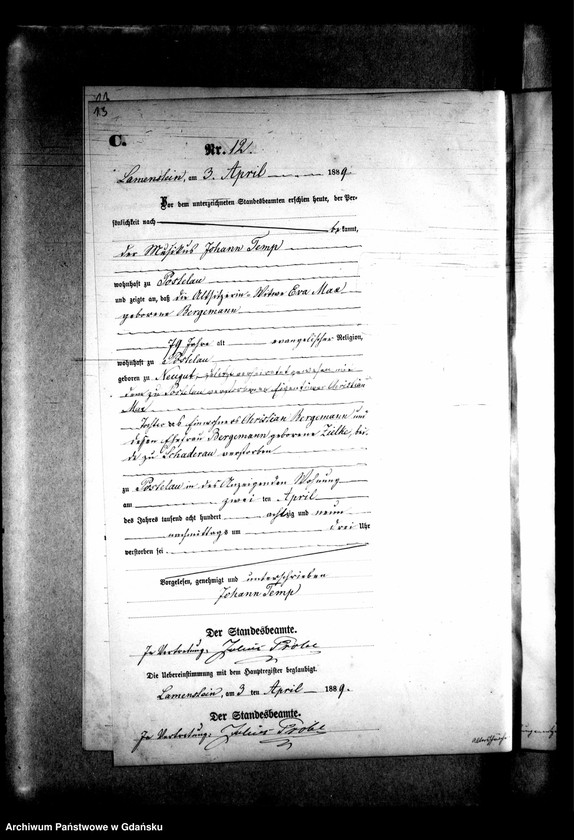 11
13
C.
Nr. 12.
Lamenstein, am 3. April 1889.
Vor dem unterzeichneten Standesbeamten erschien heute, der Per-
sönlichkeit nach
bekannt,
der Musikus Johann Temp
wohnhaft zu Postelau
und zeigte an, daß die Altsitzerin-Witwe Eva Max
geborene Bergemann
79 Jahre alt evangelischer Religion,
wohnhaft zu Postelau
geboren zu Neugut, zuletzt verheirathet gewesen mit
dem zu Postelau verstorbenen Eigentümer Christian
Max
Tochter des Einwohners Christian Bergemann und
dessen Ehefrau Bergemann geborene Zielke, bei-
de zu Schaderau verstorben
zu Postelau in des Anzeigenden Wohnung
am zwei ten April
des Jahres tausend acht hundert achtzig und neun
nachmittags um drei Uhr
verstorben sei
Vorgelesen, genehmigt und unterschrieben
Johann Temp
Der Standesbeamte.
In Vertretung: Julius Probl
Die Uebereinstimmung mit dem Hauptregister beglaubigt.
Lamenstein, am 3 ten April 1889.
Der Standesbeamte.
In Vertretung: Julius Probl
Archiwum Państwowe w Gdańsku